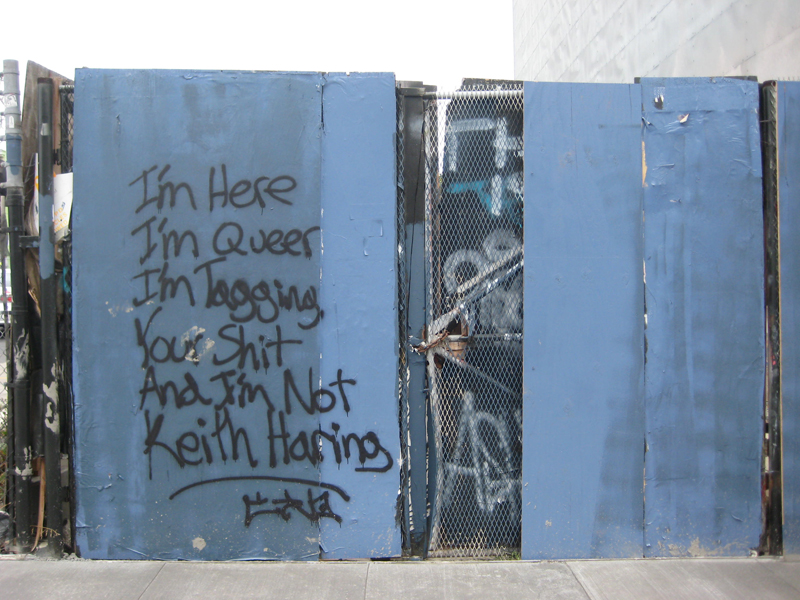 I'm Here
I'm Queer
I'm Tagging
Your Shit
And I'm Not
Keith Haring